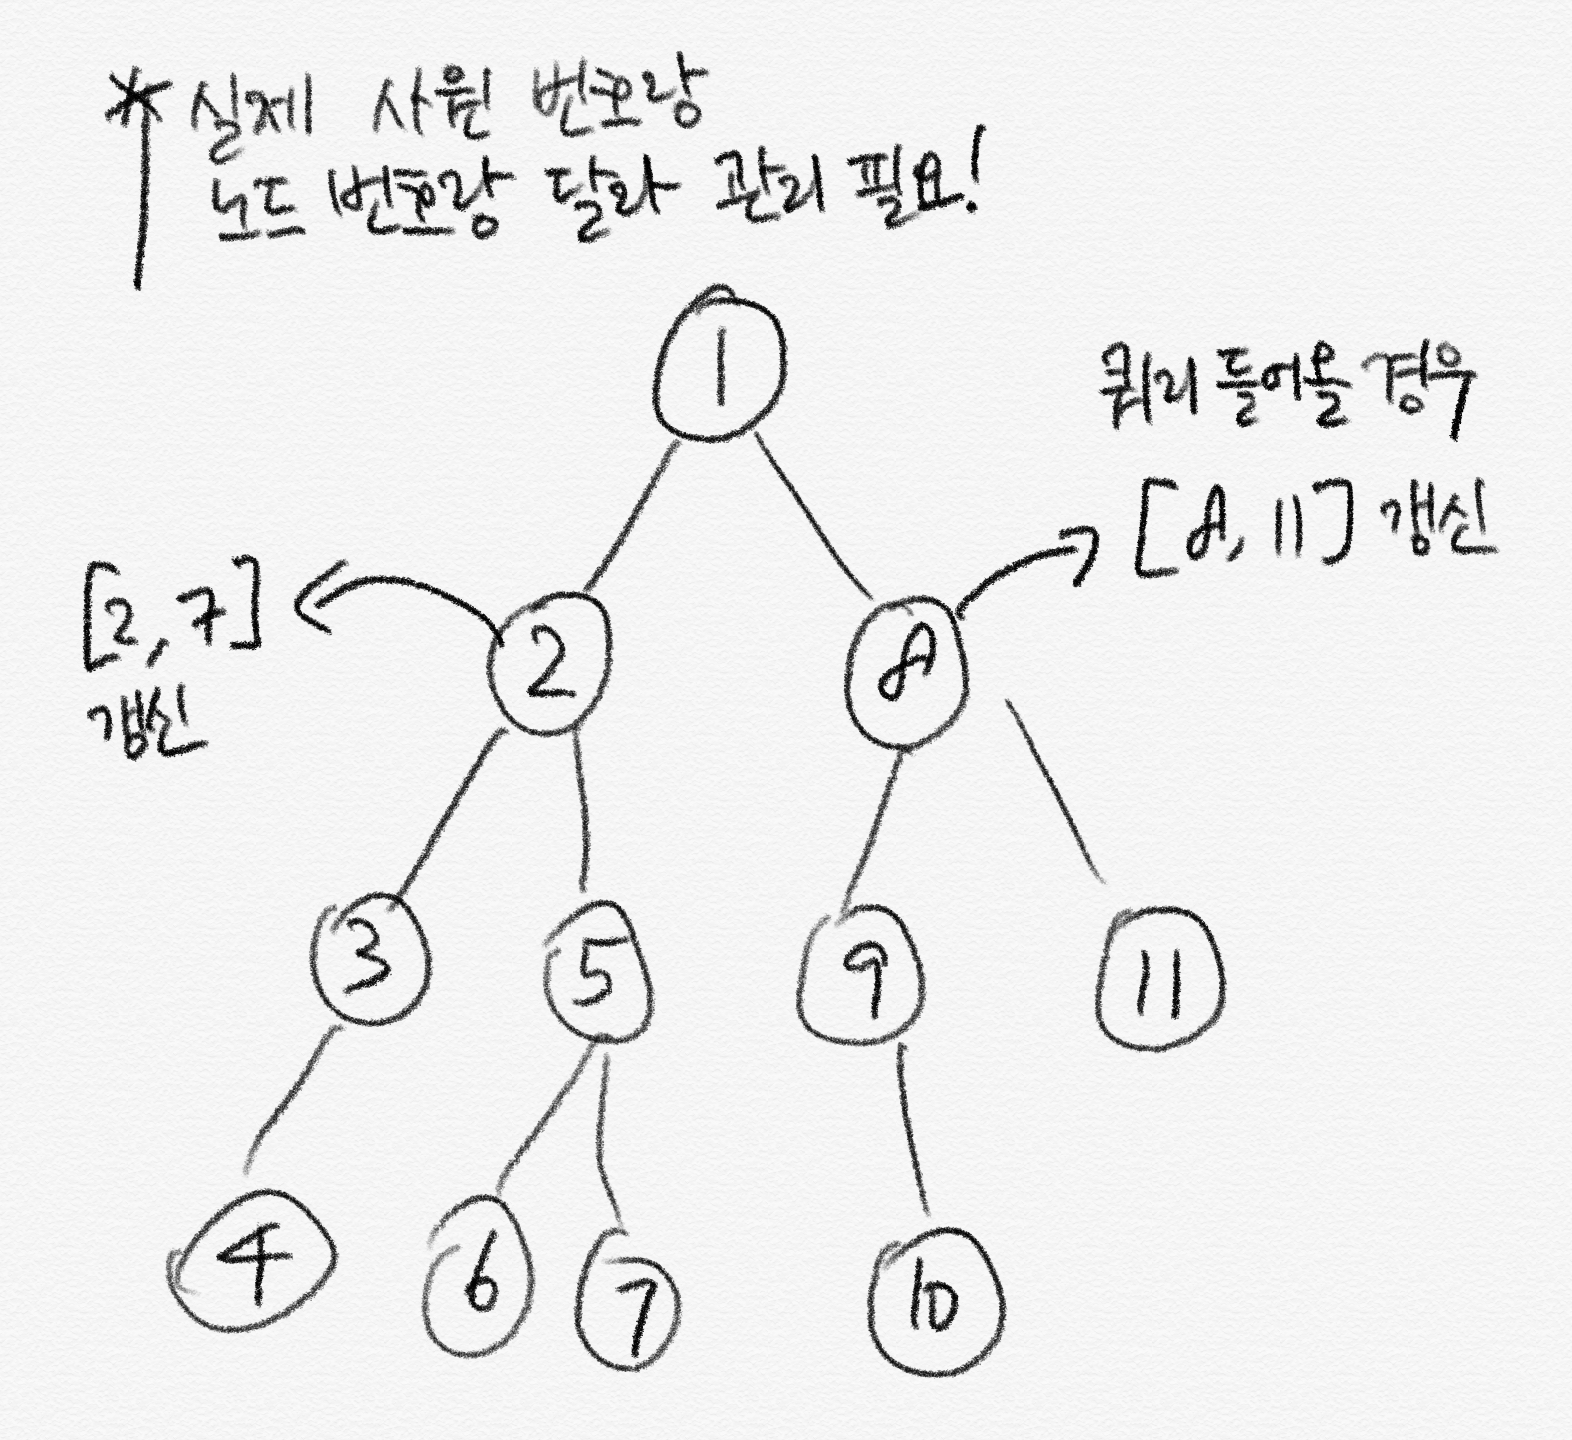 * 실제 사원 번호랑
노드 번호랑 달라 관리 필요!
1
쿼리 들어올 경우
[8, 11] 갱신
[2, 7]
갱신
2
8
3
5
9
11
4
6
7
10